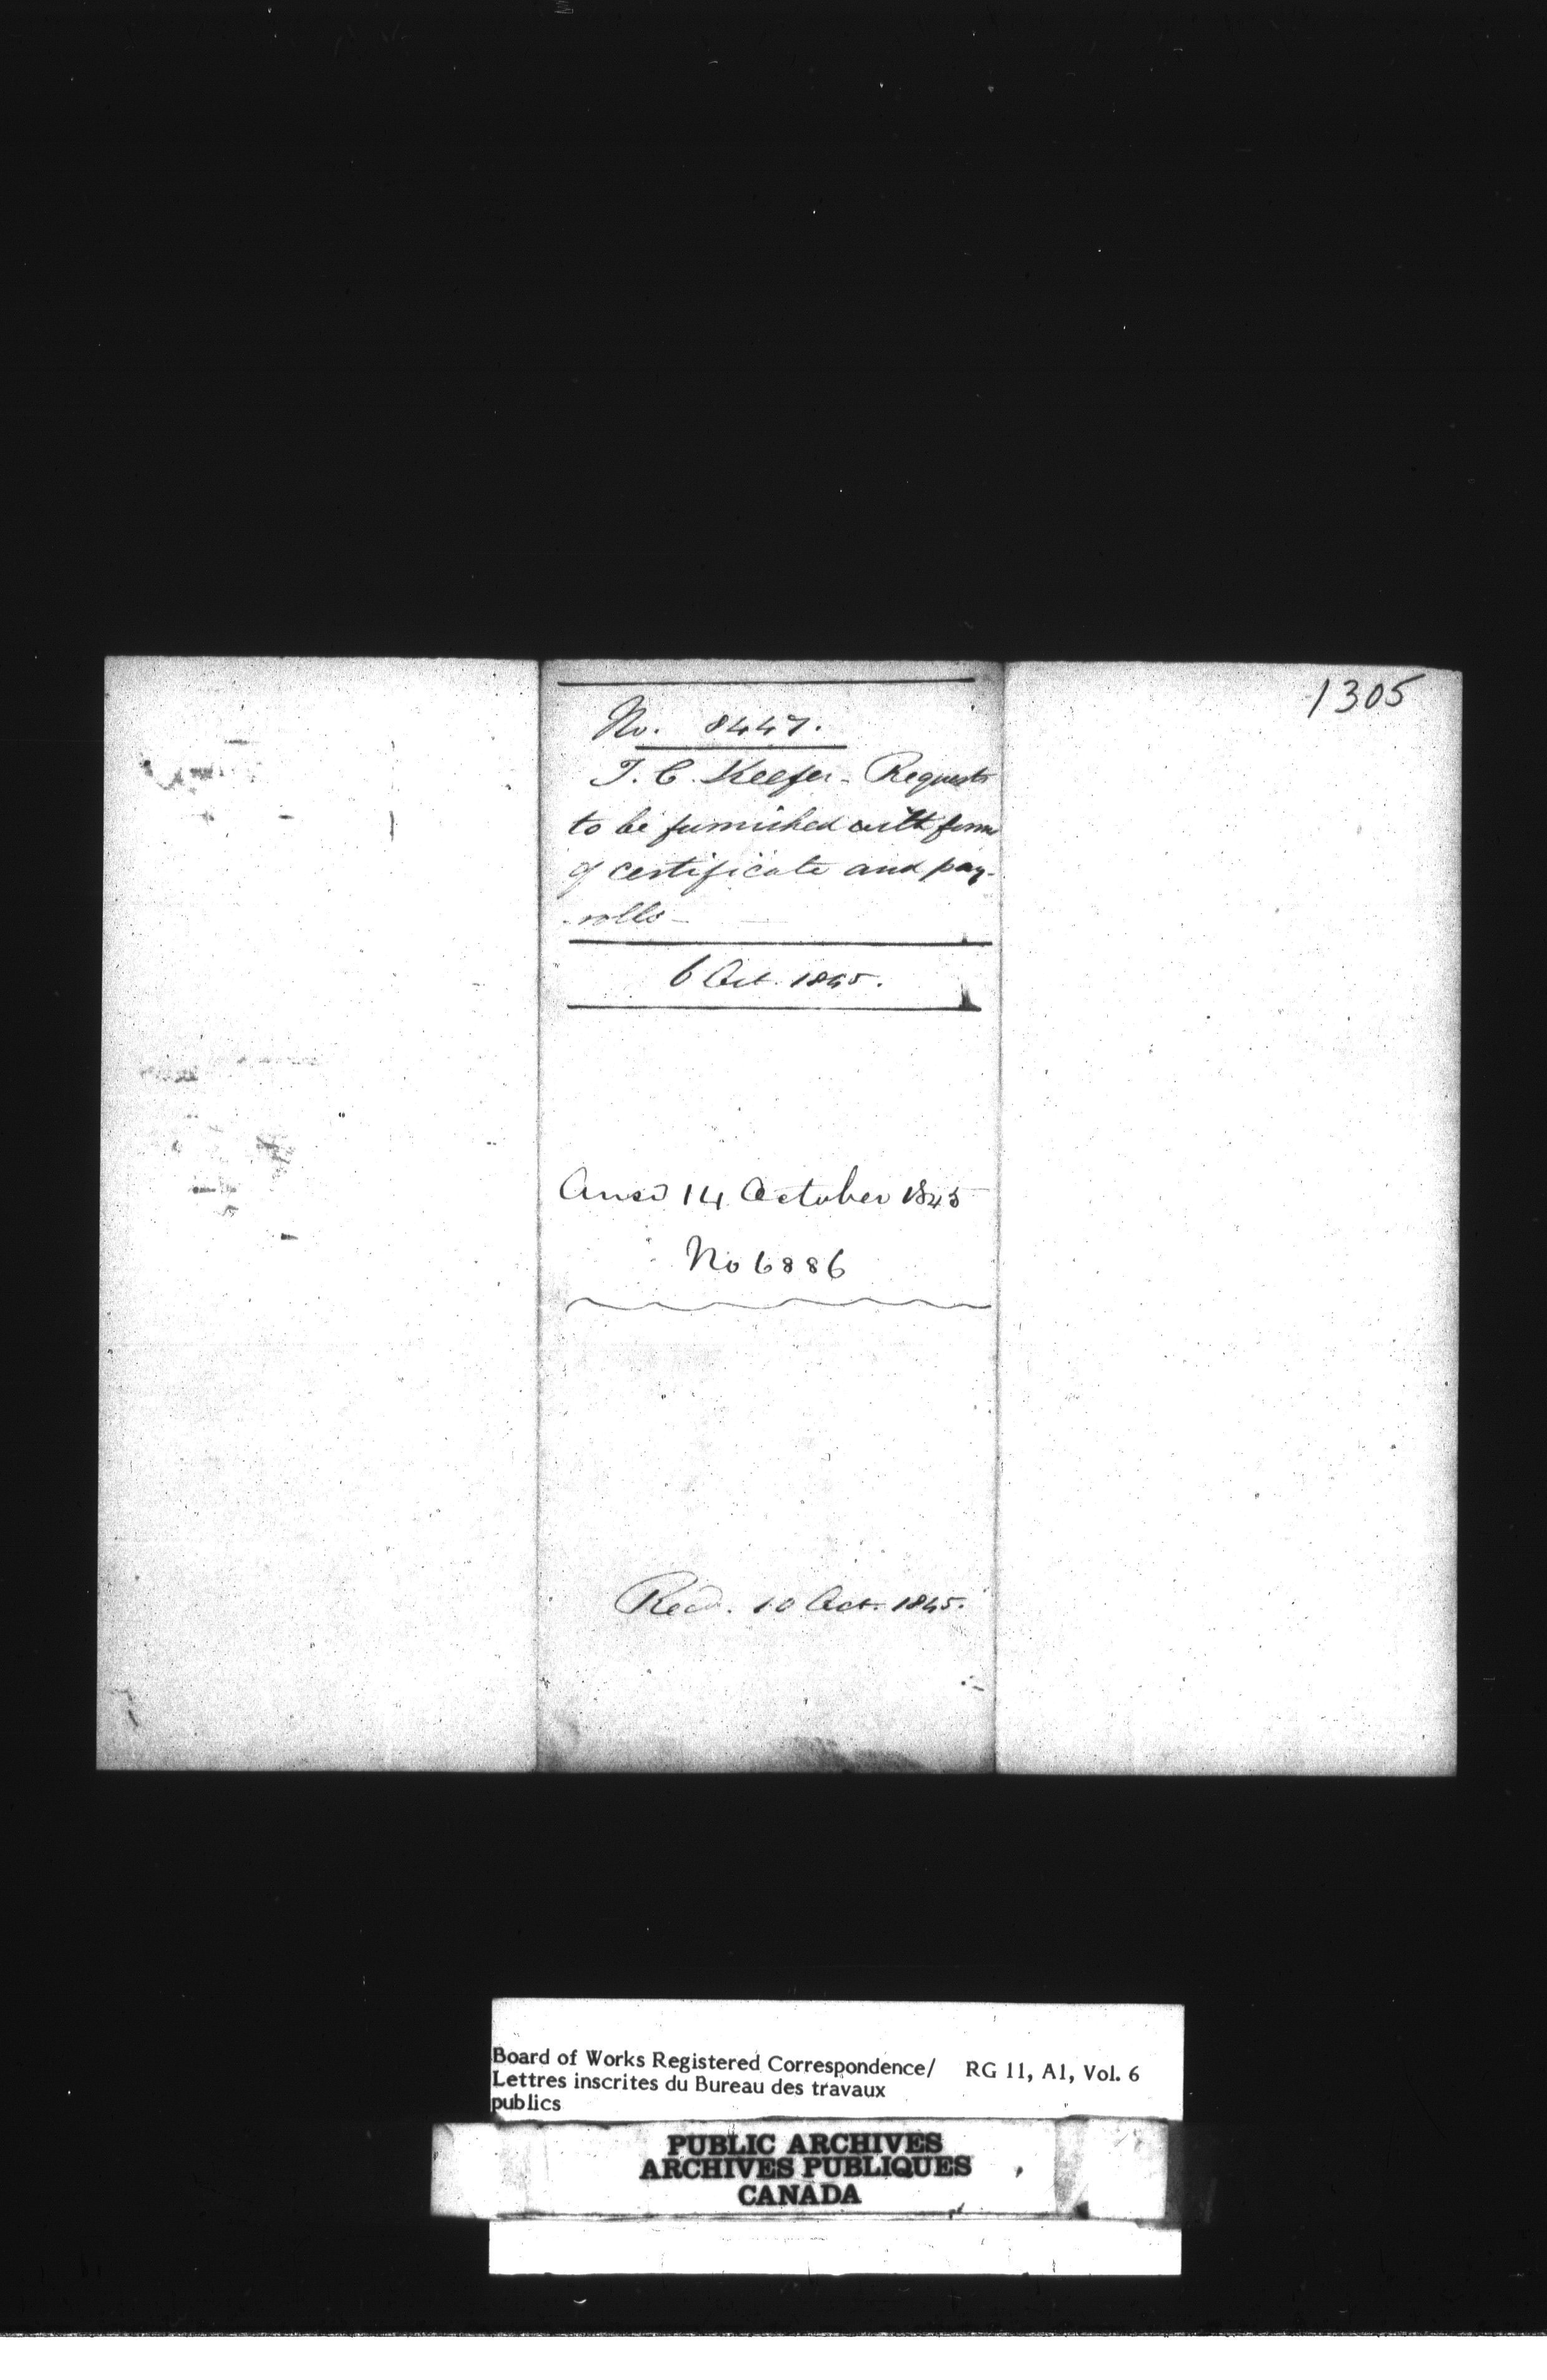 1305
No. 8447.
T. C. Keefer - Requests
to be furnished with form
of certificate and pay-
-rolls-
6 Oct. 1845.
Ansd 14 October 1845
No 6886
Recd. 10 Oct. 1845.
Board of Works Registered Correspondence/ RG 11, A1, Vol. 6
Lettres inscrites du Bureau des travaux
publics
PUBLIC ARCHIVES
ARCHIVES PUBLIQUES
CANADA